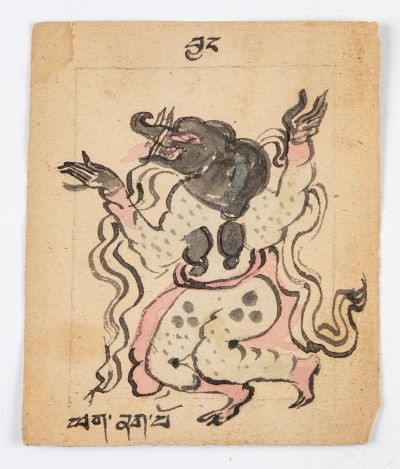 བྱང
ཕག་ནག་མོ